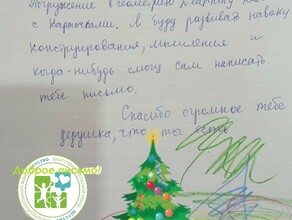 Погружение в геометрию
с Карточками. А буду развивать наваки
конструирования, мышления и
когда-нибудь смогу сам написать
тебе письмо.
Спасибо огромное тебе
дедушка, что ты есть
Доброе письмо!